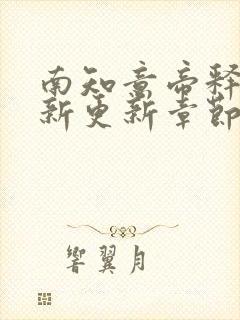 南知意帝释
新更新章節
響翼月